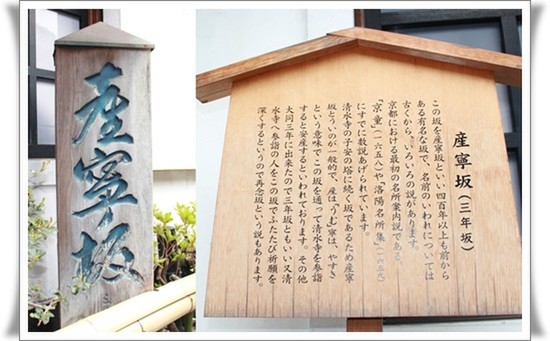 産寧坂
産寧坂（三年坂）
この坂を産寧坂といい四百年以上も前から
ある有名な坂で、名前のいわれについては
古くから、いろいろの説があります。
京都における最初の名所案内説である、
「京童」（一六五八）や「洛陽名所集」（一六五八）
にすでに数説あげられています。
清水寺の子安の塔に続く坂であるため産寧
坂というのが一般的で、産は、うむ寧は、やすき
という意味でこの坂を通って清水寺を参詣
すると安産するといわれております。その他
大同三年に出来たので三年坂ともいい又清
水寺へ参詣の人をこの坂でふたたび祈願を
深くするというので再念坂という説もあります。